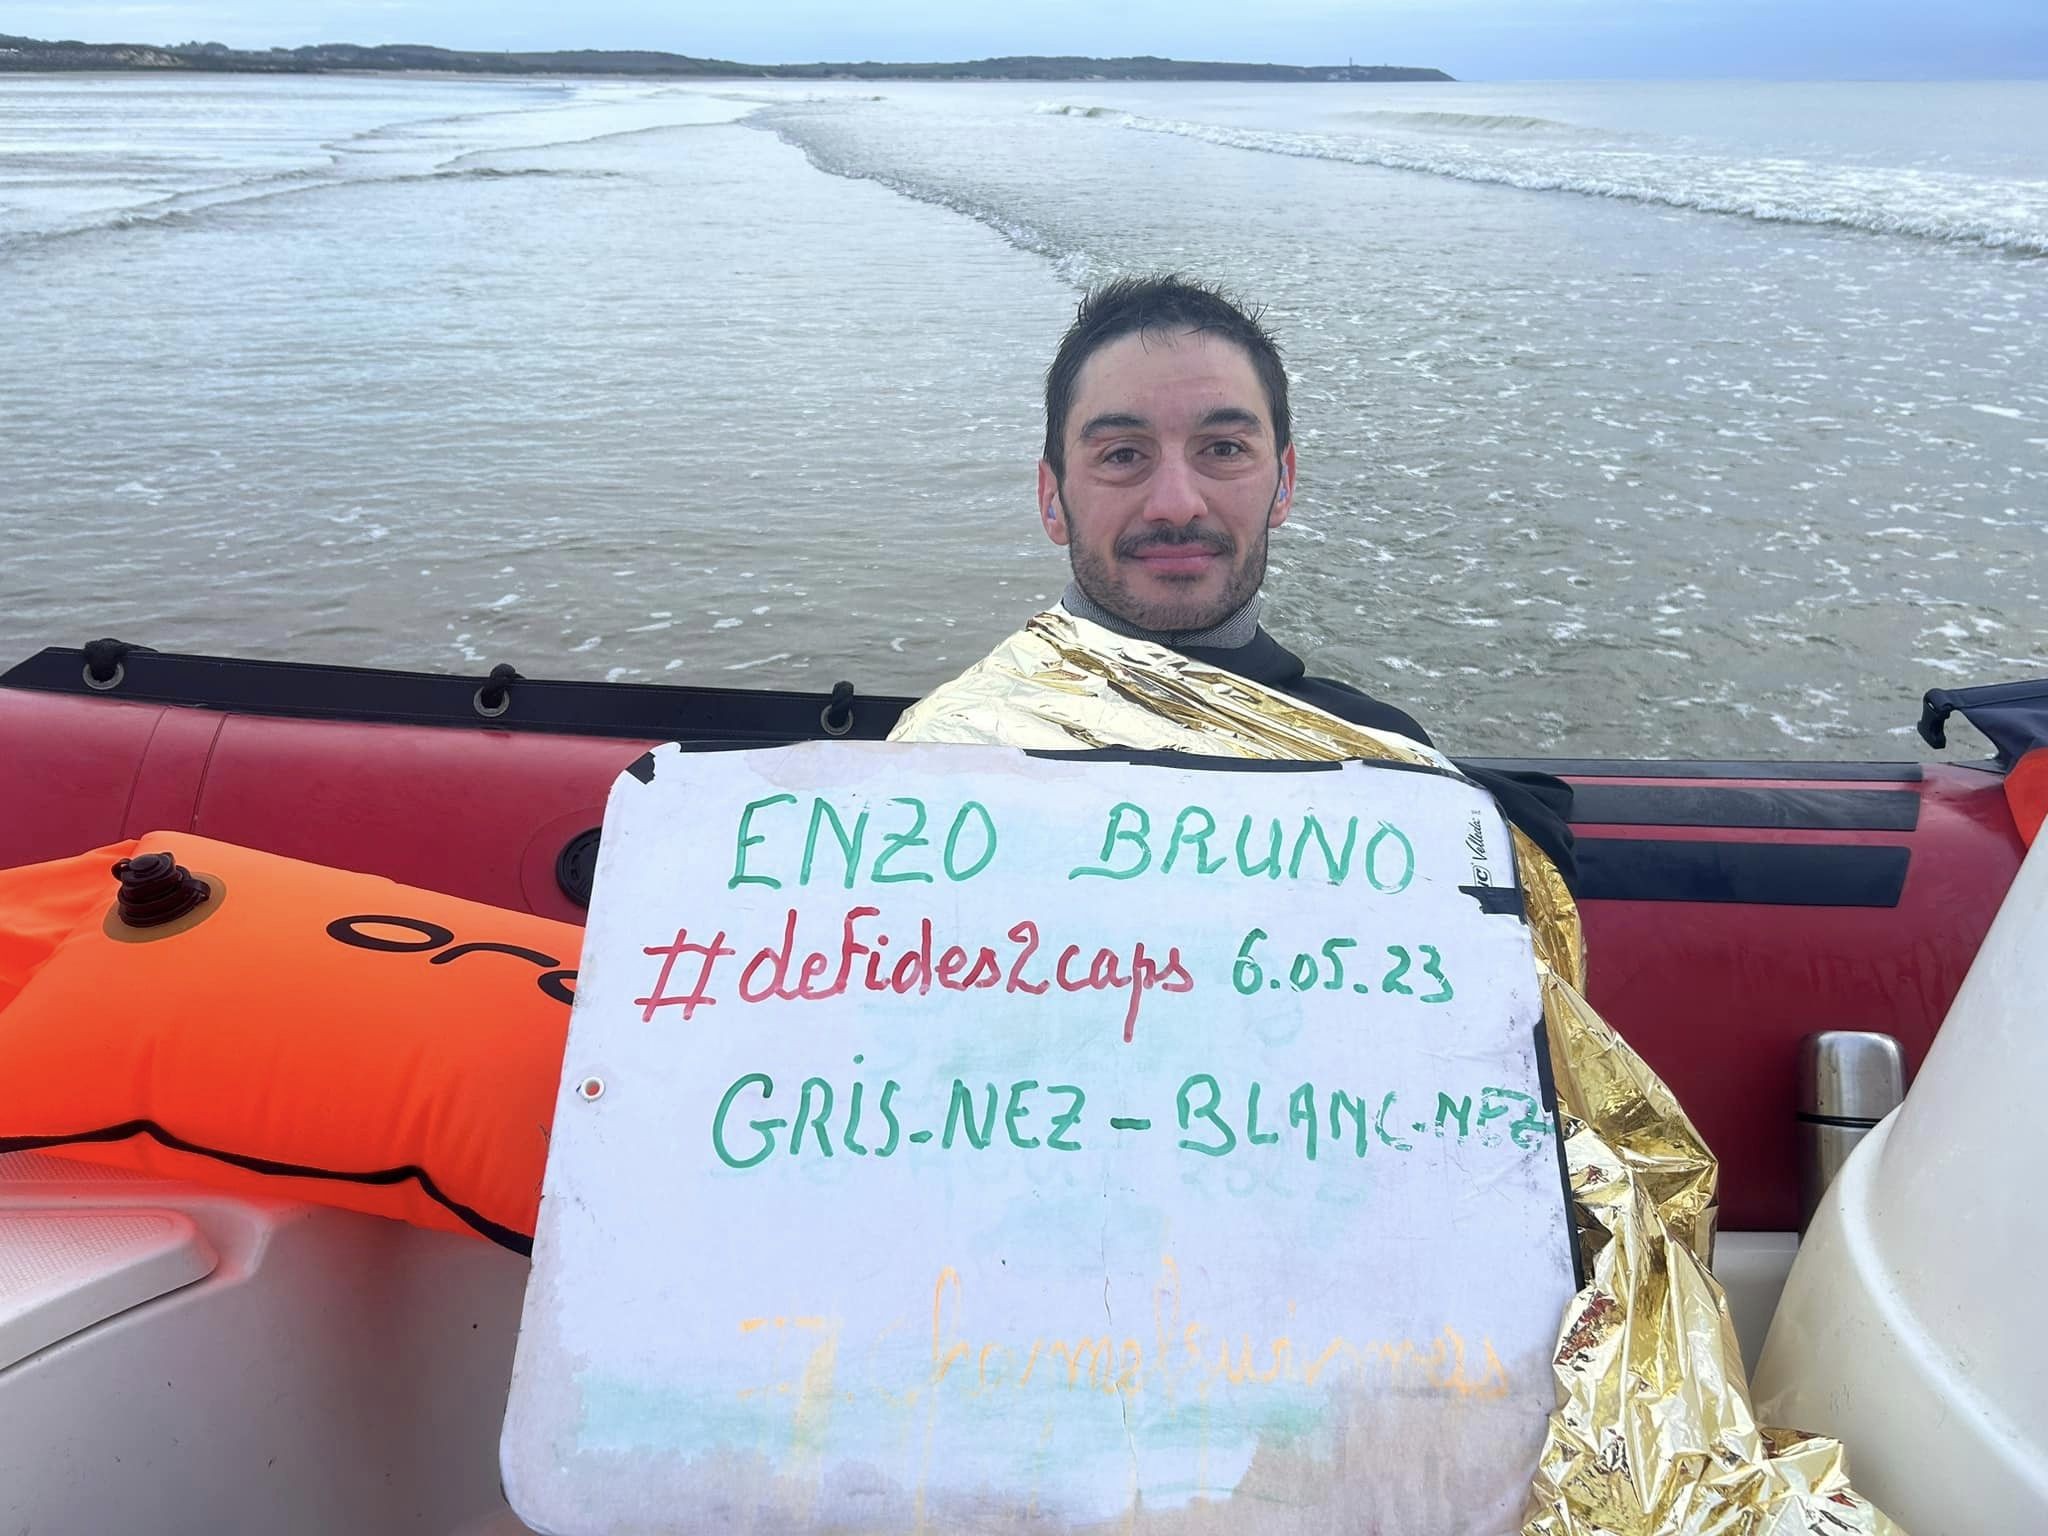 ENZO BRUNO
Velleda
#defides2caps 6.05.23
GRIS-NEZ - BLANC-NEZ